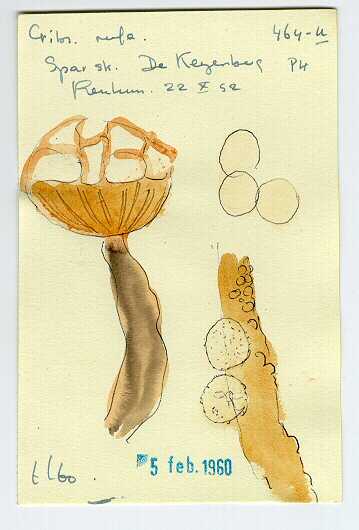 Cribr. rufa. 464-U
Spar st. De Keyenberg PH
Renkum. 22 X 52
5 feb. 1960